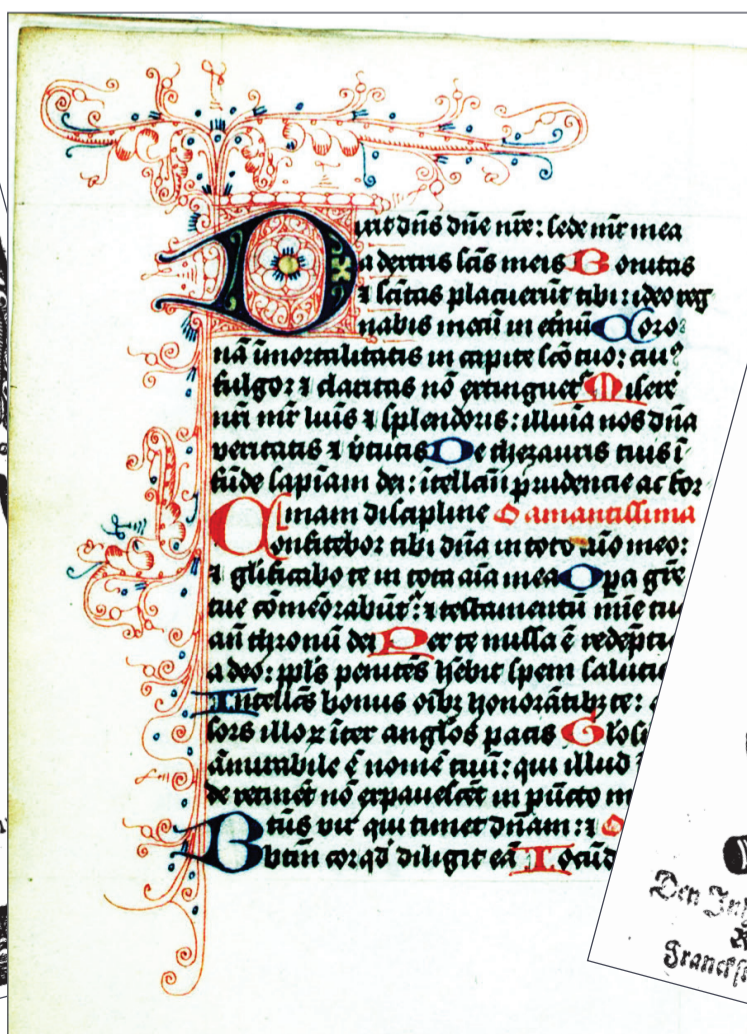 Dixit dn̄s dn̄e nr̄e: sede mr̄ mea
a dextris sc̄is meis Bonitas
⁊ sc̄itas placuerūt tibi: ideo reg
nabis mecū in et̄nū Coro
nā īmortalitatis in capite sc̄o tuo: cuiꝰ
fulgor ⁊ claritas nō extinguet᷑ Miserē
nr̄i mr̄ luīs ⁊ splendoris: illuīa nos dn̄a
veritatis ⁊ v̄tutis De thezauris tuis ī
fūde sapīam dei: ītellc̄ū prudencie ac for
mam discipline O amantissima
Confitebor tibi dn̄a in toto aīo meo:
⁊ gl̄ificabo te in tota aīa mea Opa gr̄e
tue cōmēorabūt᷑: ⁊ testamentū mīe tu
an̄ thronū dei Per te nulla ē redēptı
a deo: ppl̄s penitēs hēbit spem salutıs
Intellc̄s bonus oībꝫ honorātibꝫ te:
sors illoꝝ īter angl̄os pacis Glosi
āmirabile ē nomē tuū: qui illud
de retinēt nō expavescēt in pūcto m
Btūs vir qui timet dn̄am: ⁊
btm̄ cor qd̄ diligit eā Iocūd
Den
Franckf